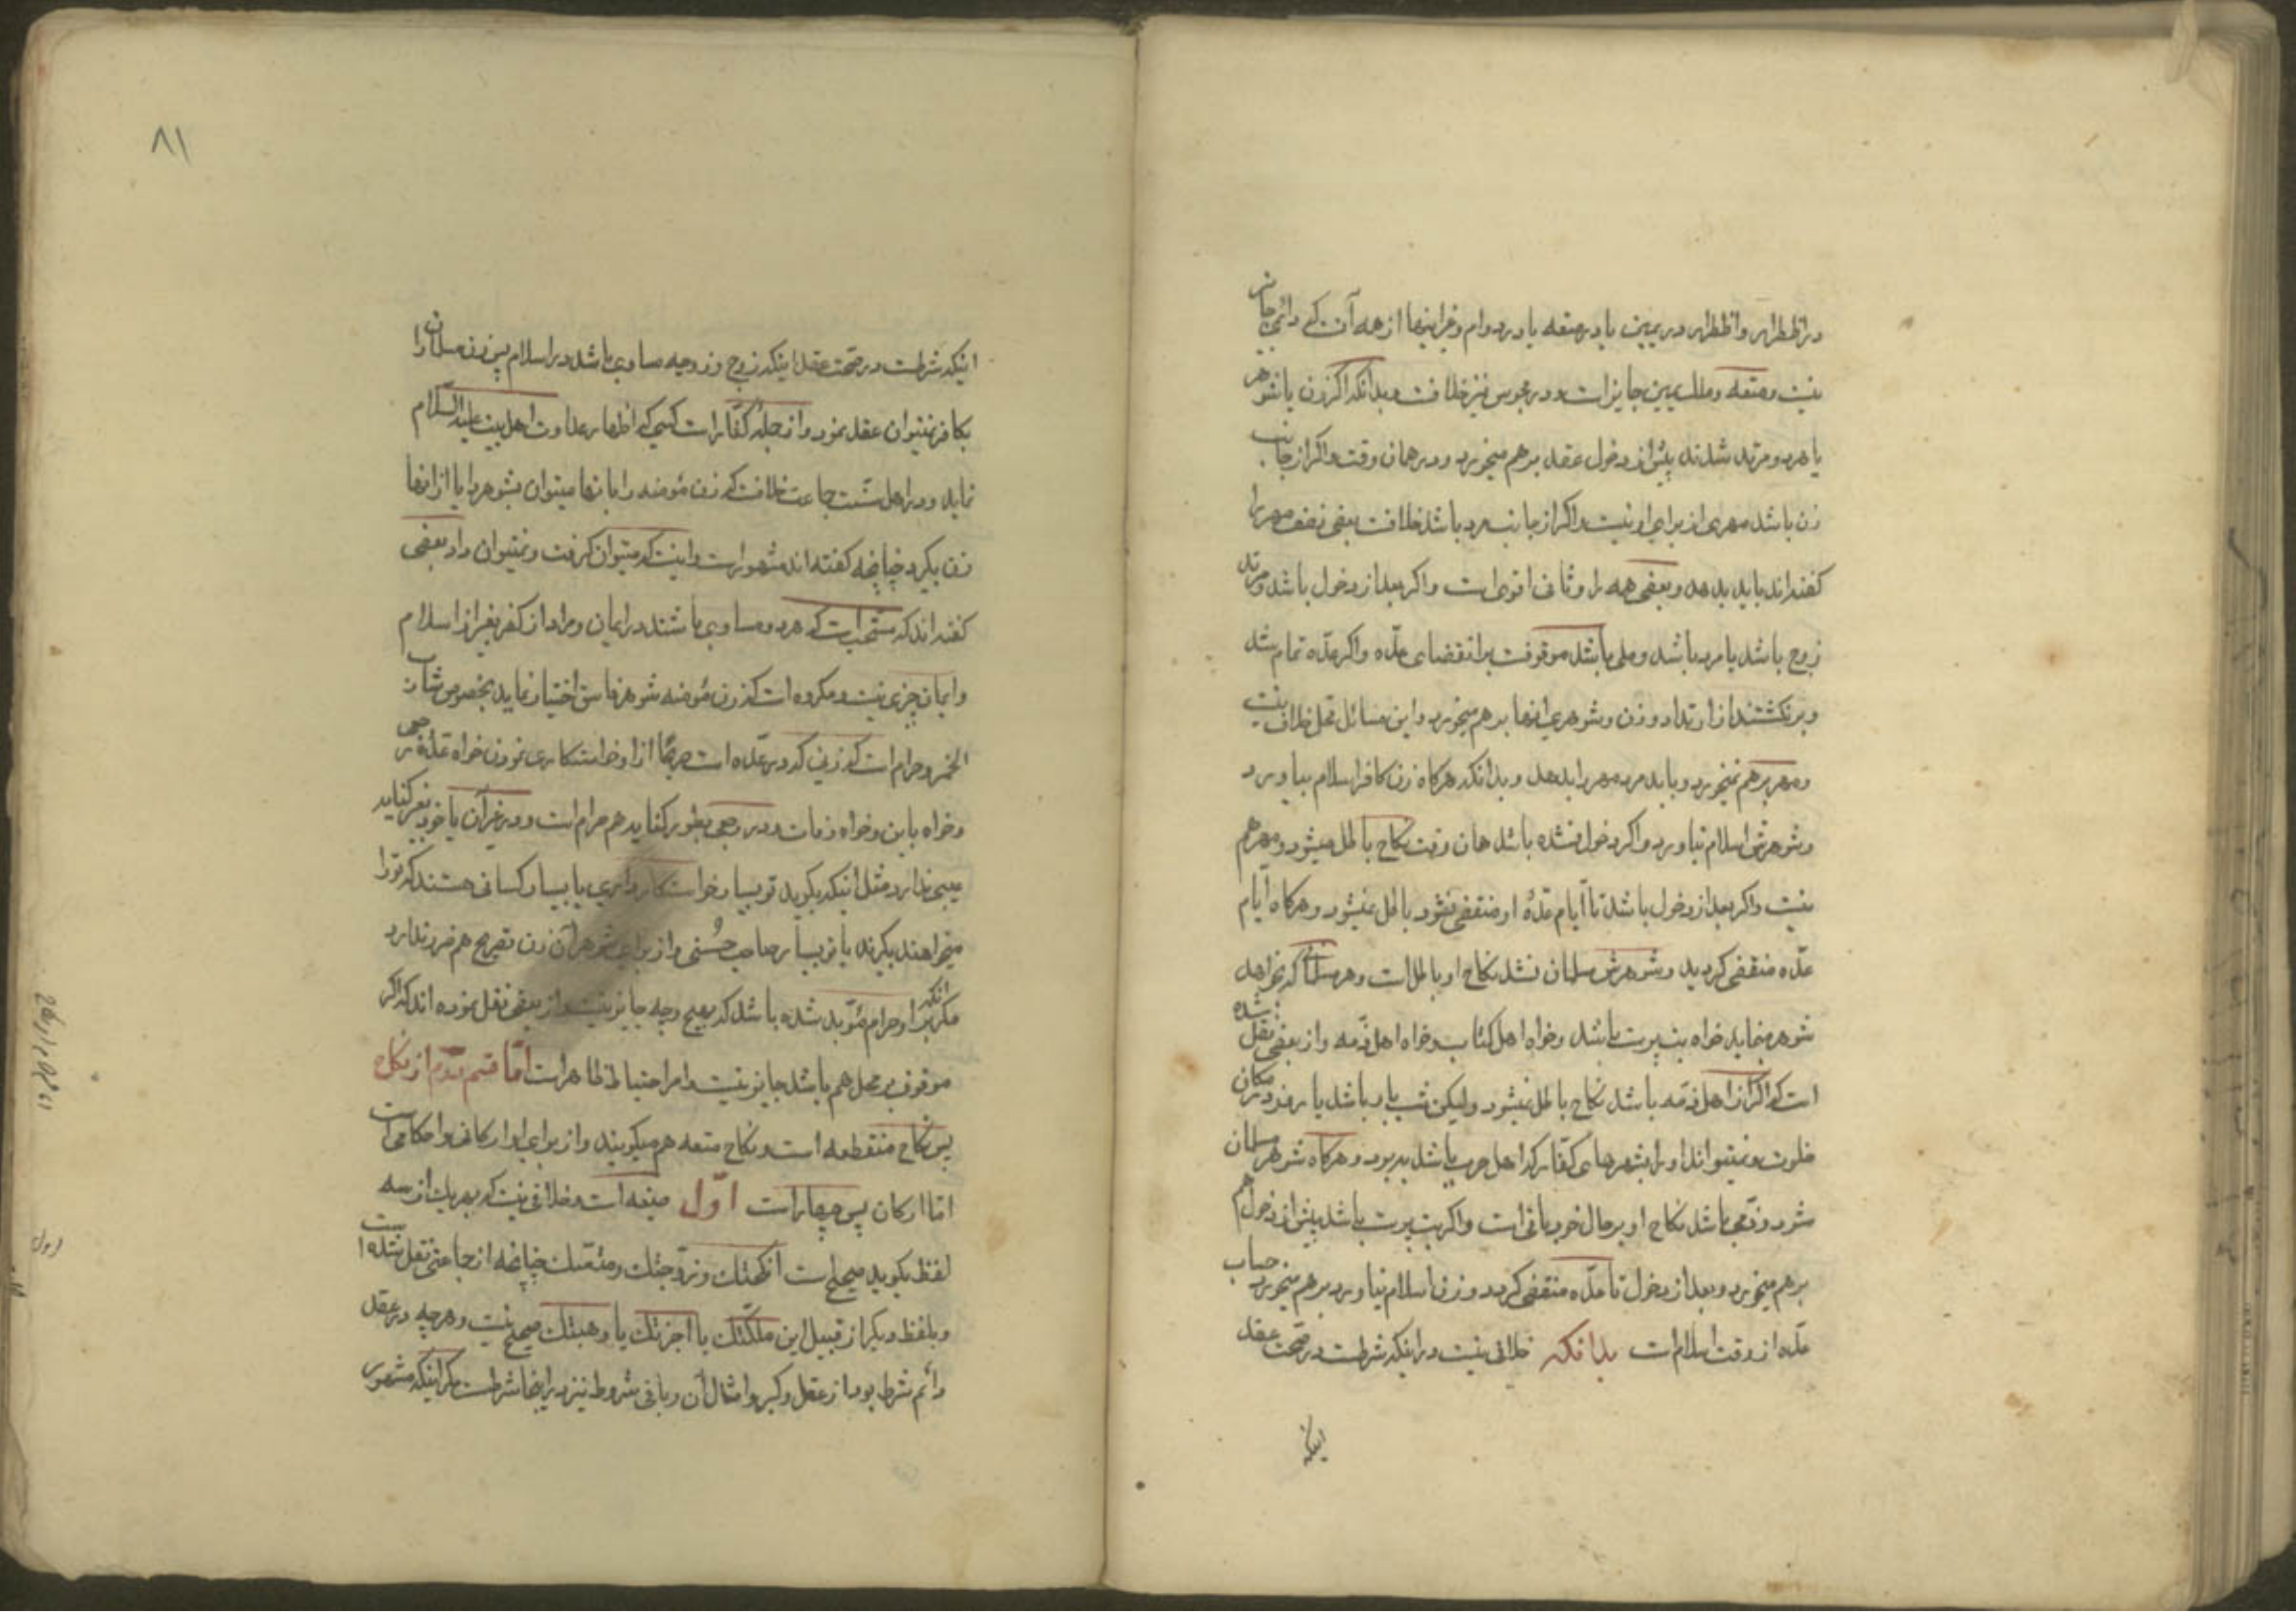 در اضطرار و اضطرار در یمین یا در متعه یا در دوام و غیر اینها از همه آنست که دائمی جایز
نیست و متعه و ملک یمین جایز است و در مجوس نیز خلافست و بدانکه اگر زن یا شوهر
یا هر دو مرتد شدند پیش از دخول عقد بر هم میخورد و در همان وقت و اگر از جانب
زن باشد مهری از برای او نیست و اگر از جانب مرد باشد خلافست بعضی نصف مهر را
گفته‌اند باید بدهد و بعضی همه را و ثانی اقوی است و اگر بعد از دخول باشد و مرتد
زوج باشد یا مرد باشد و ملی باشد موقوفست بر انقضای عدّه و اگر عدّه تمام شد
و بر نگشتند از ارتداد و زن و شوهری انها بر هم میخورد و این مسائل محل خلاف نیست
و مهر بر هم نمیخورد و باید مرد مهر را بدهد و بدانکه هرکاه زن کافر اسلام بیاورد
و شوهرش اسلام نیاورد و اگر دخول نشده باشد همان وقت نکاح باطل میشود و مهر هم
نیست و اگر بعد از دخول باشد تا ایام عدّهٔ او منقضی نشود باطل نمیشود و هرکاه ایام
عدّه منقضی گردید و شوهرش مسلمان نشد نکاح او باطل است و هر مسلمانی که نخواهد
شوهر مینماید خواه بت پرست باشد و خواه اهل کتاب و خواه اهل ذمه و از بعضی نقل شده
است که اگر از اهل ذمّه باشد نکاح باطل نمیشود و لیکن شب یا در باشد یا روز در مکان
خلوت و نمیتواند او را بشهرهای کفّار که اهل حرب باشد ببرد و هرکاه شوهر مسلمان
شود و ذمّی باشد نکاح او بر حال خود باقی است و اگر بت پرست باشد پیش از دخول هم
بر هم میخورد و بعد از دخول تا عدّه منقضی گردد و زن اسلام نیاورد بر هم میخورد حساب
عدّه از وقت اسلام است بدانکه خلافی نیست در اینکه شرطست در صحّت عقد
اینکه
۸۱
اینکه شرطست در صحّت عقد اینکه زوج و زوجه مساوی باشد در اسلام پس زن مسلمان را
بکافر نمیتوان عقد نمود و از جمله کفّار است کسی که اظهار عداوت اهل بیت علیه السّلام
نماید و در اهل سنّت جماعت خلافست که زن مؤمنه را بانها میتوان بشوهر داد یا از انها
زن بگیرد چنانچه گفته‌اند مشهور است و اینست که میتوان گرفت و نمیتوان داد بعضی
گفته‌اند که مستحب است که هر دو مساوی باشند در ایمان و مراد از کفر بغیر از اسلام
و ایمان چیزی نیست و مکروه است که زن مؤمنه شوهر فاسق اختیار نماید بخصوص شارب
الخمر و حرام است که زنی که در عدّه است صریحًا از او خواستکاری نمودن خواه عدّهٔ رجعی
و خواه باین و خواه وفات و در رجعی بطور کنایه هم حرام است و در غیر آن یا خود بغیر کنایه
عیبی ندارد مثل اینکه بگوید تو بسیار خواستکار داری یا بسیار کسانی هستند که تو را
میخواهند بگیرند یا تو بسیار صاحب حُسنی و از برای شوهر آن زن تصریح هم ضرر ندارد
مگر انکه بر او حرام مؤبد شده باشد که بهیچ وجه جایز نیست و از بعضی نقل نموده‌اند که اگر
موقوف بر محلل هم باشد جایز نیست و امر احتیاط ظاهر است امّا قسم دوّم از نکاح
پس نکاح منقطعه است و نکاح متعه هم میگویند و از برای او ارکانی و احکامی است
امّا ارکان پس چهار است اوّل صیغه است و خلافی نیست که بهر یک از سه
لفظ بگوید صحیح است انکحتک و زوّجتک و متّعتک چنانچه از جماعتی نقل شده است
و بلفظ دیگر از قبیل این ملّکتک یا آجرتک یا وهبتک صحیح نیست و هرچه در عقد
دائم شرط بود از عقل و کبر و امثال آن و باقی شروط نیز در اینجا شرطست مگر اینکه مشهور